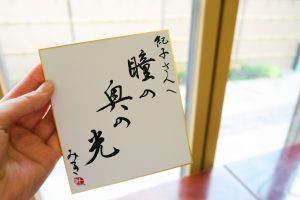 紀子さんへ
瞳の
奥の
光
みき